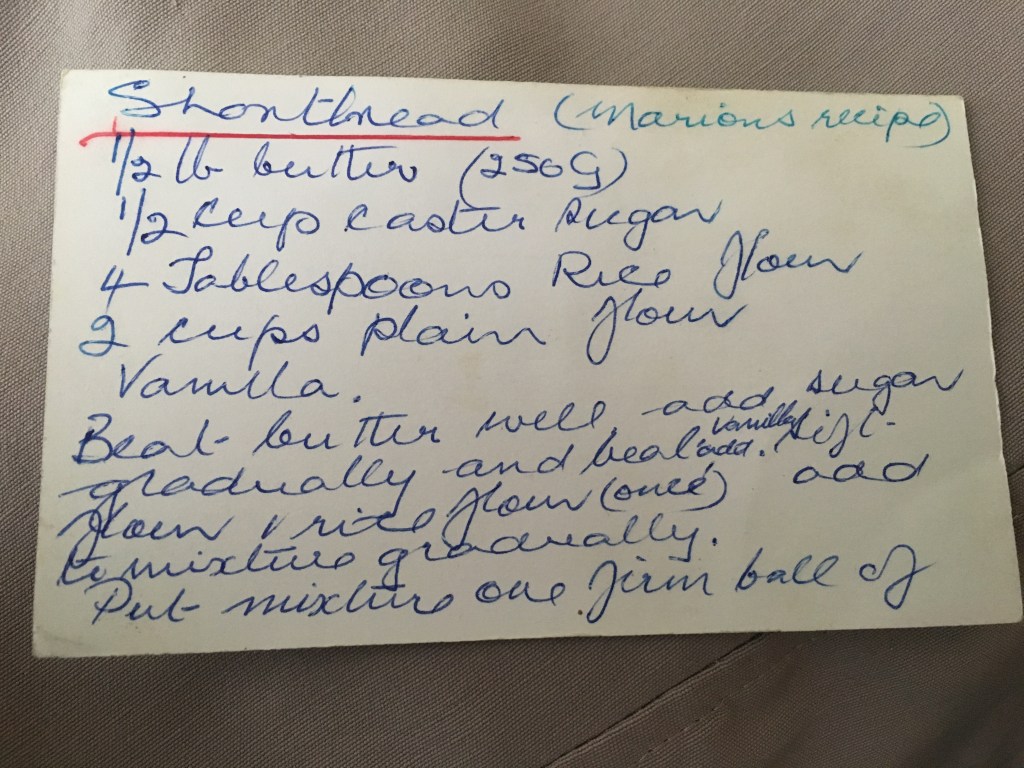 Shortbread (Marions recipe)
1/2 lb butter (250G)
1/2 cup caster sugar
4 Tablespoons Rice flour
2 cups plain flour
Vanilla.
Beat butter well, add sugar
gradually and beat, add vanilla. Sift
flour & rice flour (once) add
to mixture gradually.
Put mixture one firm ball of